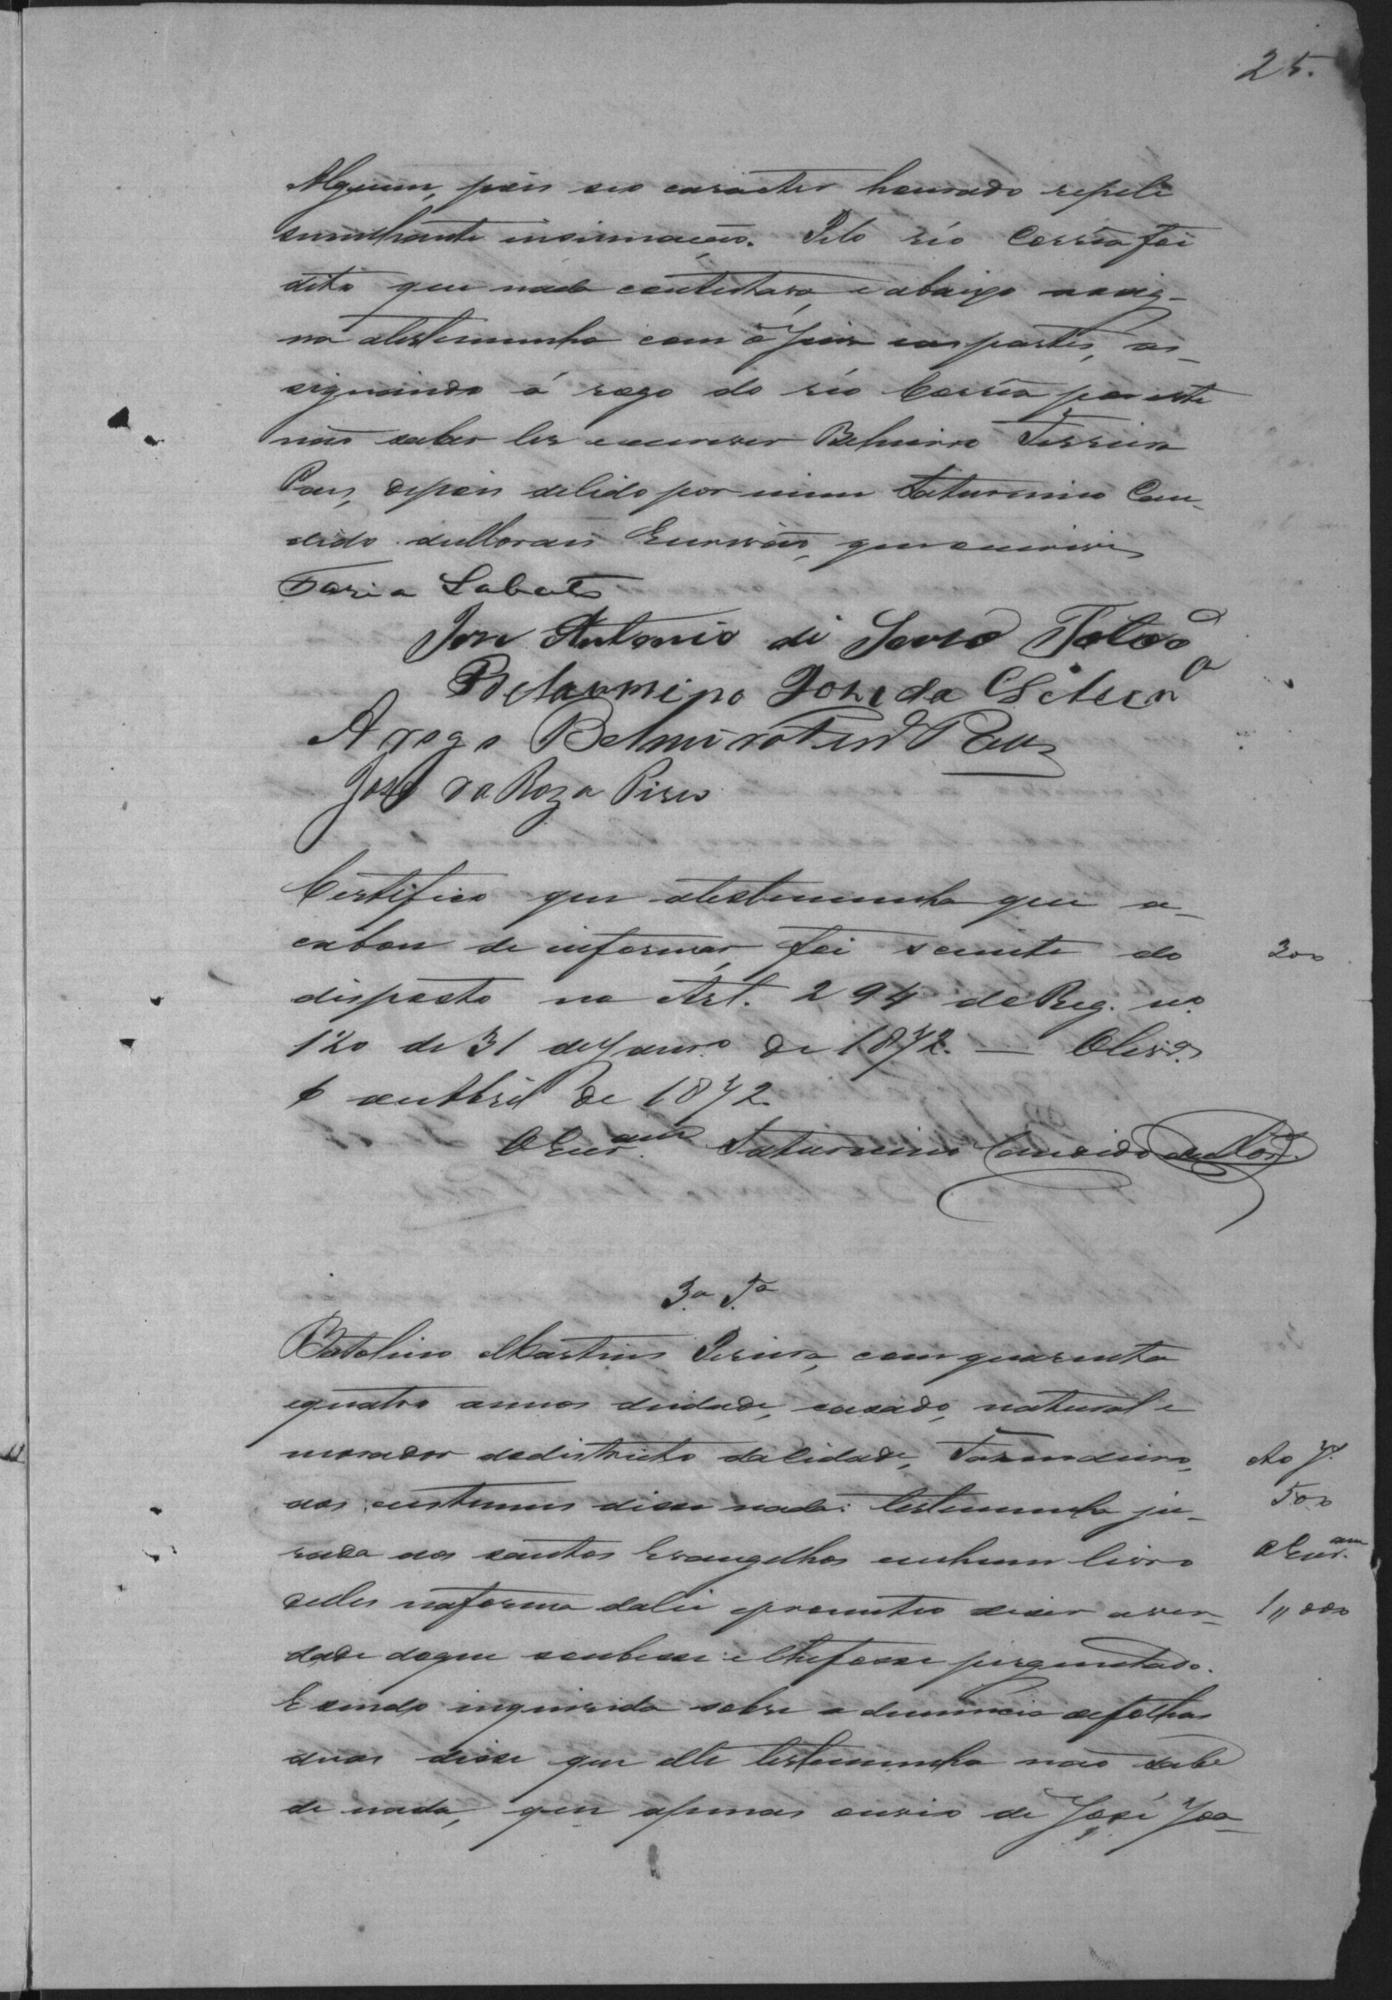 25.
Alguem, pois seo caracter honrado repele
semilhante insinuação. Pelo réo Corrêa foi
dito que nada contestava, e abaixo assig-
na atestemunha com o Juis eas partes, as-
signando á rogo do réo Corrêa por este
não saber ler e escrever Belmiro Ferreira
Paes, depois delido por mim Saturnino Can-
dido deMoraes Escrivão, que escrevi
Faria Lobato
José Antonio de Souza
Belarmino Joze da
A rogo Belmiro Ferrª Paes
José da Roza Pires
Certifico que atestemunha que a-
cabou de informar, foi sciente do
disposto no Art. 294 do Reg. nº
120 de 31 deJanrº de 1842. — Olivrª
6 deAbril de 1872.
300
OEscram Saturnino Candido deMors.
3.a T.a
Martins Pereira, com quarenta
equatro annos deidade, casado, natural e
morador dodistricto dacidade, Fazendeiro,
aos custumes disse nada: testemunha ju-
rada aos santos Evangelhos emhum livro
delles naforma dalei eprometeo diser aver-
dade doque soubesse e lhefosse perguntado.
E sendo inquirida sobre a denuncia defolhas
duas disse que elle testemunha não sabe
de nada, que apenas ouvio de José Joa-
Ao J.
500
OEscr.am
1,,000